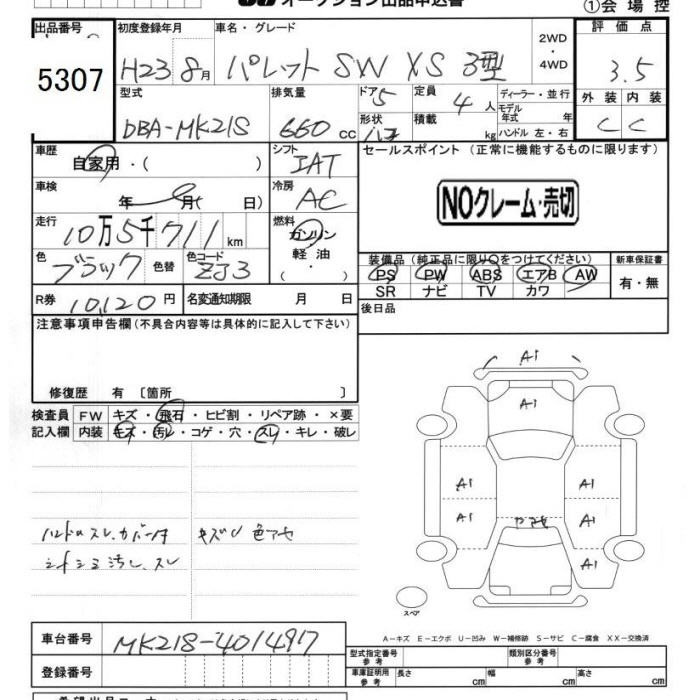 オークション出品申込書
①会場控
出品番号
5307
初度登録年月 車名・グレード
H23 8月 パレット SW XS 3型
2WD・4WD
評価点
3.5
外装 内装
C C
型式
DBA-MK21S
排気量
660 cc
ドア 5
形状 ハコ
定員 4人
積載 kg
ディーラー・並行
モデル年式 年
ハンドル 左・右
車歴
自家用・( )
シフト
IAT
セールスポイント (正常に機能するものに限ります)
NOクレーム・売切
車検
年 月( 日)
冷房
AC
走行
10万5千711km
燃料
ガソリン・軽油・( )
色
ブラック 色替
色コード
ZJ3
装備品 (純正品に限り○をつけてください)
PS PW ABS エアB AW
SR ナビ TV カワ
新車保証書
有・無
R券 10,120円 名変通知期限 月 日
後日品
注意事項申告欄(不具合内容等は具体的に記入して下さい)
修復歴 有 〔箇所 〕
検査員記入欄
FW キズ・飛石・ヒビ割・リペア跡・×要
内装 キズ・汚レ・コゲ・穴・スレ・キレ・破レ
ハンドルスレ、カバー キズU 色アセ
シートシミ汚レ、スレ
A1
A1
A1 A1
A1 ヤアセ A1
A1
スペア
A-キズ E-エクボ U-凹み W-補修跡 S-サビ C-腐食 XX-交換済
車台番号 MK21S-4014917
登録番号
型式指定番号 参考
類別区分番号 参考
車庫証明用 参考 長さ cm 幅 cm 高さ cm
希望出品コーナー